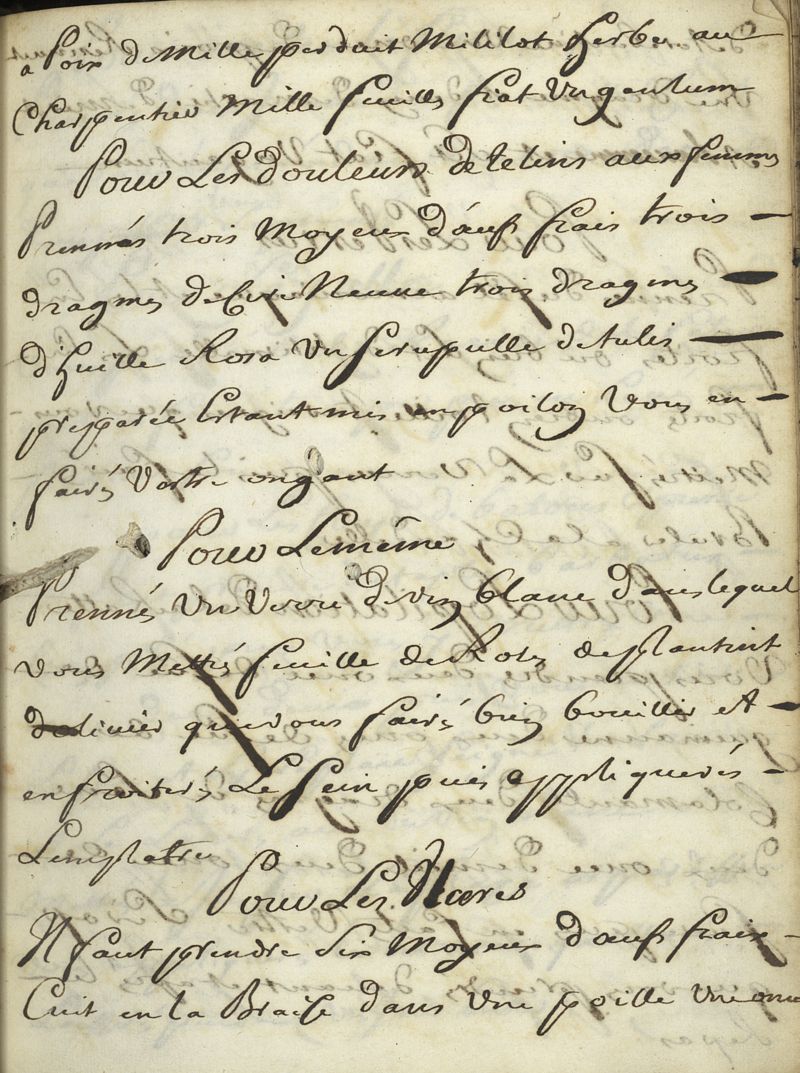 a Poix de Mille perduit Mililot herbe au
Charpentier Mille feuills fiat Unguentum
Pour Les douleurs de tetins aux femmes
Prennés trois Moyeux d'œufs frais trois
dragmes de Cire Neuue trois dragmes
d'huille Rosa Un scrupulle de
preparée Estant mis en poilon Vous en
fairés Vostre ongant
Pour Le même
Prennés Un Verre de vin blanc dans lequel
vous Mettrés feuille de de plantint
que vous fairés bien bouillir et
en froiterés Le sein puis appliquerés
L'emplatre
Pour Les Ulceres
Il faut prendre Six Moyeux d'œufs fraix
Cuit en la Braise dans Une poille Une once